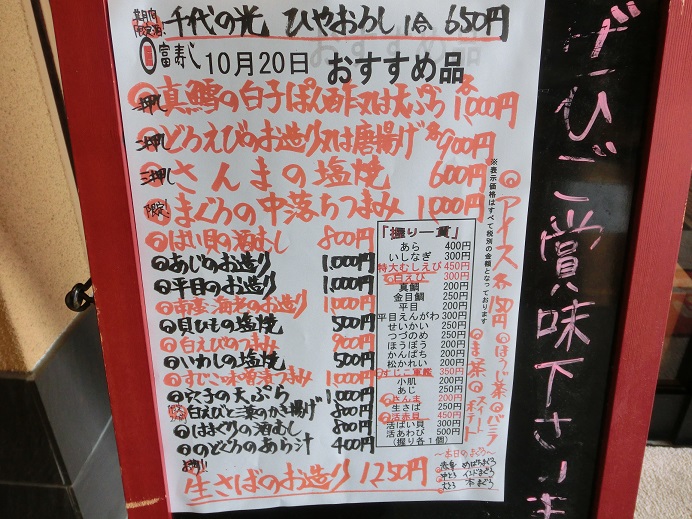 千代の光 ひやおろし 1合 650円
富寿し 10月20日 おすすめ品
一押し 真鱈の白子ぽん酢又は天ぷら 各1,000円
二押し どろえびのお造り又は唐揚げ 各900円
三押し さんまの塩焼 600円
限定! まぐろの中落ちつまみ 1,000円
ばい貝の酒むし 800円
あじのお造り 1,000円
平目のお造り 1,000円
南蛮海老のお造り 1,000円
貝ひもの塩焼 500円
白えびつまみ 900円
いわしの塩焼 500円
すじこ味噌漬つまみ 1,000円
穴子の天ぷら 1,000円
白えびと のかき揚げ 800円
はまぐりの酒むし 800円
のどぐろのあら汁 400円
生さばのお造り 1,250円
「握り一貫」
あら 400円
いしなぎ 300円
特大むしえび 450円
白えび 300円
真鯛 200円
金目鯛 250円
平目 200円
平目えんがわ 300円
せいかい 250円
つづのめ 250円
ほうぼう 200円
かんぱち 200円
松かれい 200円
すじこ軍艦 350円
小肌 200円
あじ 250円
さんま 200円
生さば 250円
活赤貝 450円
活ばい貝 300円
活あわび 500円
(握り各1個)
～本日のまぐろ～
赤身 めばちまぐろ
中とろ インドまぐろ
大とろ 本まぐろ
※表示価格はすべて税別の金額となっております
アイス 各150円
ほうじ茶 バニラ
ま茶 スイートポテト
ぜひご賞味下さいま